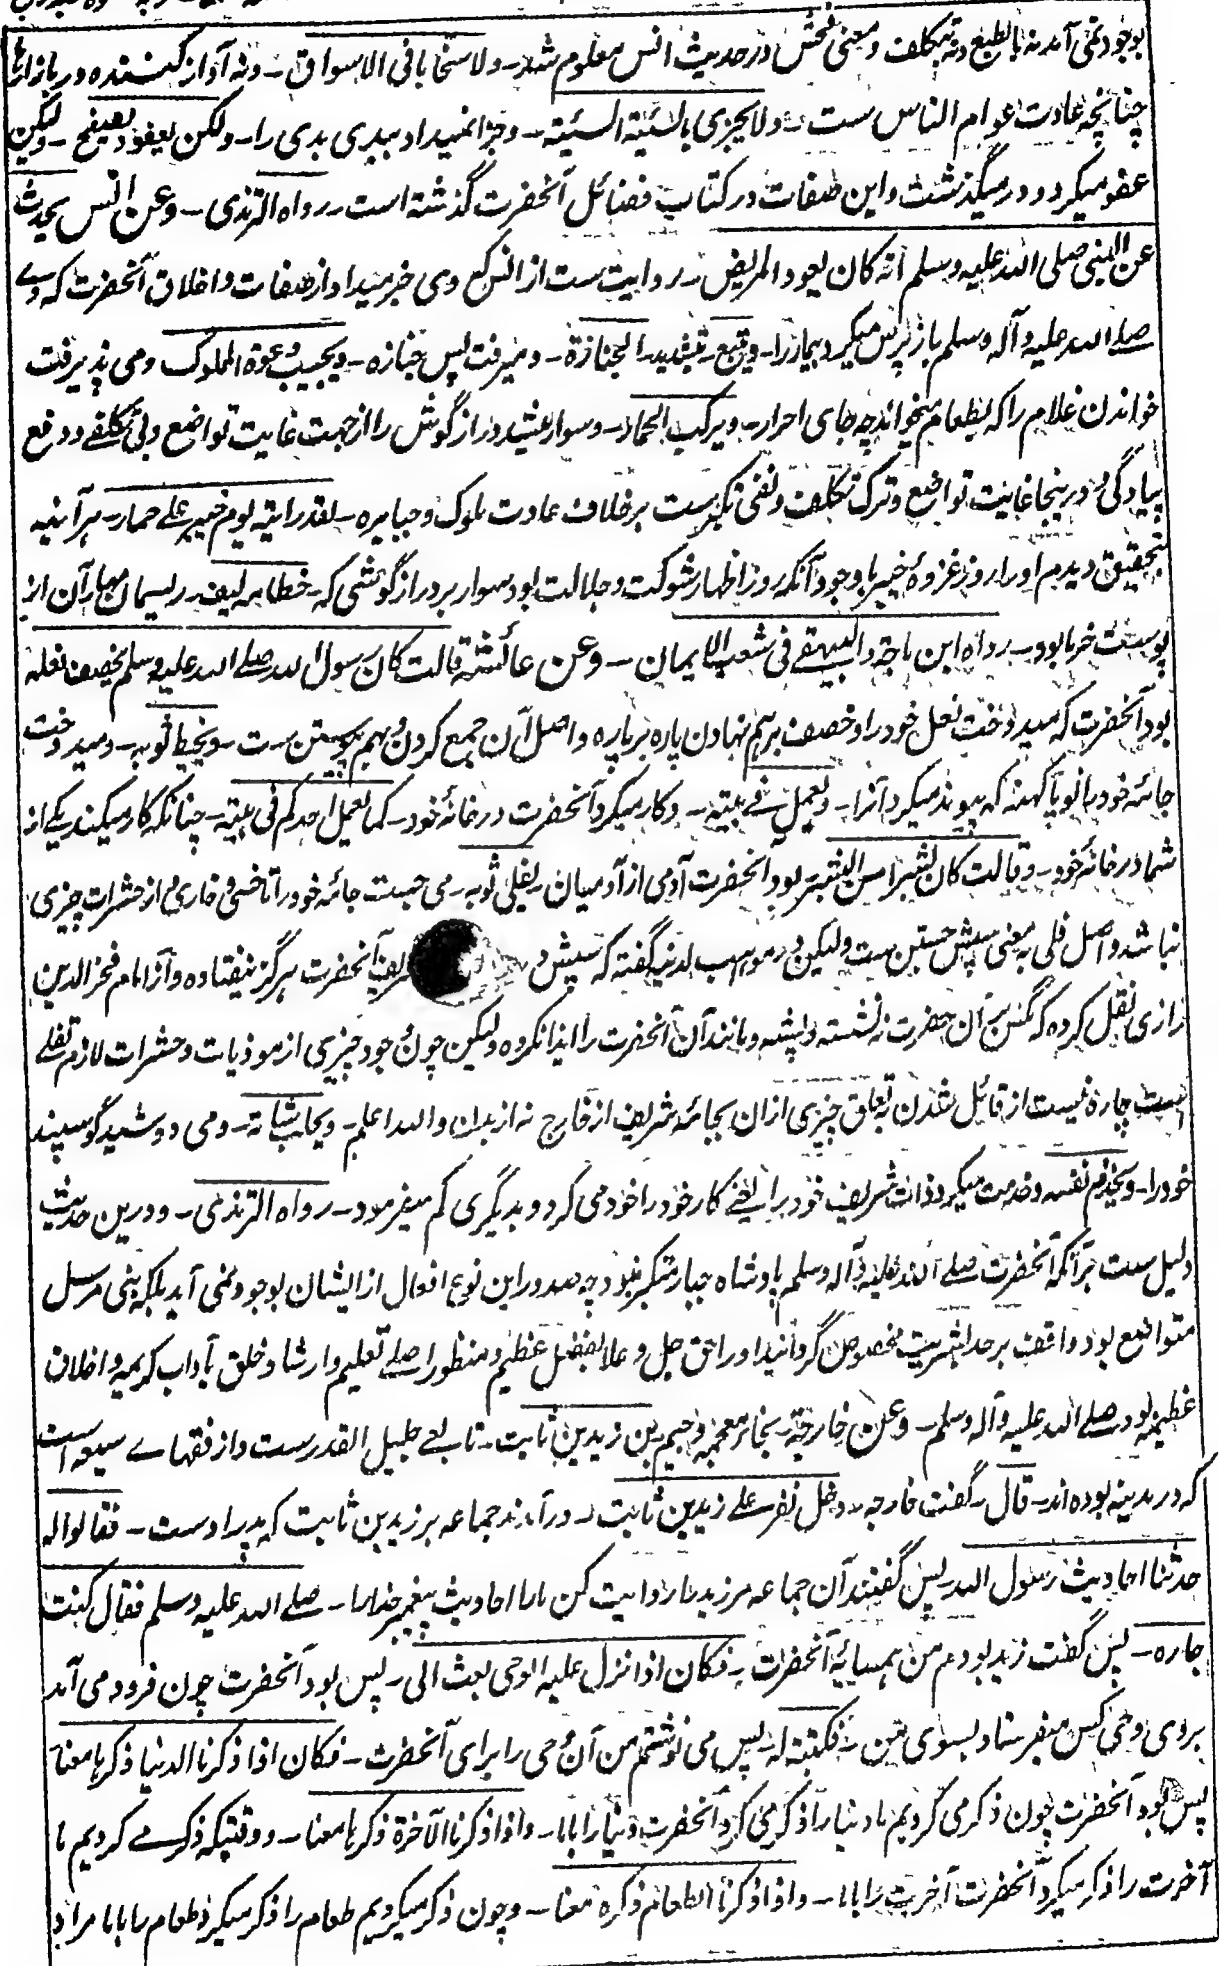 بوجود نمی آمد نه بالطبع و نه بتکلف و معنی فحش در حدیث انس معلوم شد - ولا سخابا فی الاسواق - و نه آواز کننده در بازارها
چنانچه عادت عوام الناس ست - ولا یجزی بالسیئة السیئة - و جزا نمیداد ببدی بدی را - ولکن یعفو و یصفح - ولیکن
عفو میکرد و درمیگذشت و این صفات در کتاب فضائل آنحضرت گذشته است - رواه الترمذی - وعن انس یحدث
عن النبی صلی الله علیه وسلم انه کان یعود المریض - روایت ست از انس که وی خبر میداد از صفات و اخلاق آنحضرت که وے
صلے الله علیه وآله وسلم باز پرس میکرد بیمار را - ویتبع - بتشدید - الجنازة - و میرفت پس جنازه - ویجیب دعوة المملوک و می پذیرفت
خواندن غلام را که بطعام میخواند چه جای احرار - ویرکب الحمار - و سوار میشد دراز گوش را از جهت غایت تواضع و بی تکلفے و دفع
پیادگی و درینجا غایت تواضع و ترک تکلف و نفی تکبر ست برخلاف عادت ملوک و جبابره - لقد رایته یوم خیبر علے حمار - هر آئینه
بتحقیق دیدم او را روز غزوهٔ خیبر با وجود آنکه روز اظهار شوکت و جلالت بود سوار بر دراز گوشی که - خطامه لیف - ریسمان مهار آن از
پوست خرما بود - رواه ابن ماجة والبیهقے فی شعب الایمان - وعن عائشة قالت کان رسول الله صلے الله علیه وسلم یخصف نعله
بود آنحضرت که میدوخت نعل خود را و خصف بر هم نهادن پاره بر پاره و اصل آن جمع کردن و بهم پیوستن ست - ویخیط ثوبه - و میدوخت
جامهٔ خود یا نو یا کهنه که پیوند میکرد آنرا - ویعمل فے بیته - و کار میکرد آنحضرت در خانهٔ خود - کما یعمل احدکم فی بیته - چنانکه کار میکند یکے از
شما در خانهٔ خود - وقالت کان بشرا من البشر - بود آنحضرت آدمی از آدمیان - یفلی ثوبه - می جست جامهٔ خود را تا خسی و خاری و از حشرات چیزی
نباشد و اصل فلی به معنی سپش جستن ست ولیکن در مواهب لدنیه گفته که سپش در آنحضرت هرگز نیفتاده و از امام فخر الدین
رازی نقل کرده که مگس بر آن حضرت ننشسته و پشه و مانند آن آنحضرت را ایذا نکرده ولیکن چون وجود چیزی از موذیات و حشرات لازم تفلے
است چاره نیست از قائل شدن به تعلق چیزی ازان بجامهٔ شریف از خارج نه از بدن والله اعلم - ویحلب شاته - و می دوشید گوسپند
خود را - ویخدم نفسه و خدمت میکرد ذات شریف خود را یعنے کار خود را خود می کرد و بدیگری کم میفرمود - رواه الترمذی - و درین حدیث
دلیل ست بر آنکه آنحضرت صلے الله علیه وآله وسلم پادشاه جبار متکبر نبود چه صدور این نوع افعال از ایشان بوجود نمی آید بلکه نبی مرسل
متواضع بود و واقف بر حد بشریت مخصوص گردانید او را حق جل و علا بفضل عظیم و منظور اصلے تعلیم و ارشاد خلق بآداب کریمه و اخلاق
عظیمه بود صلے الله علیه وآله وسلم - وعن خارجة - بخاء معجمه و جیم - بن زید بن ثابت - تابعے جلیل القدر ست و از فقهاے سبعه است
که در مدینه بوده اند - قال - گفت خارجه - دخل نفر علے زید بن ثابت - در آمدند جماعه بر زید بن ثابت که پدر اوست - فقالوا له
حدثنا احادیث رسول الله - پس گفتند آن جماعه مر زید را روایت کن ما را احادیث پیغمبر خدا را - صلے الله علیه وسلم فقال کنت
جاره - پس گفت زید بودم من همسایهٔ آنحضرت - فکان اذا نزل علیه الوحی بعث الی - پس بود آنحضرت چون فرود می آمد
بروی وحی کس میفرستاد بسوی من - فکتبته له - پس می نوشتم من آن وحی را برای آنحضرت - فکان اذا ذکرنا الدنیا ذکرها معنا
پس بود آنحضرت چون ذکر می کردیم ما دنیا را ذکر می کرد آنحضرت دنیا را باما - واذا ذکرنا الآخرة ذکرها معنا - و وقتیکه ذکر مے کردیم ما
آخرت را ذکر میکرد آنحضرت آخرت را باما - واذا ذکرنا الطعام ذکره معنا - و چون ذکر میکردیم طعام را ذکر میکرد طعام را باما مراد